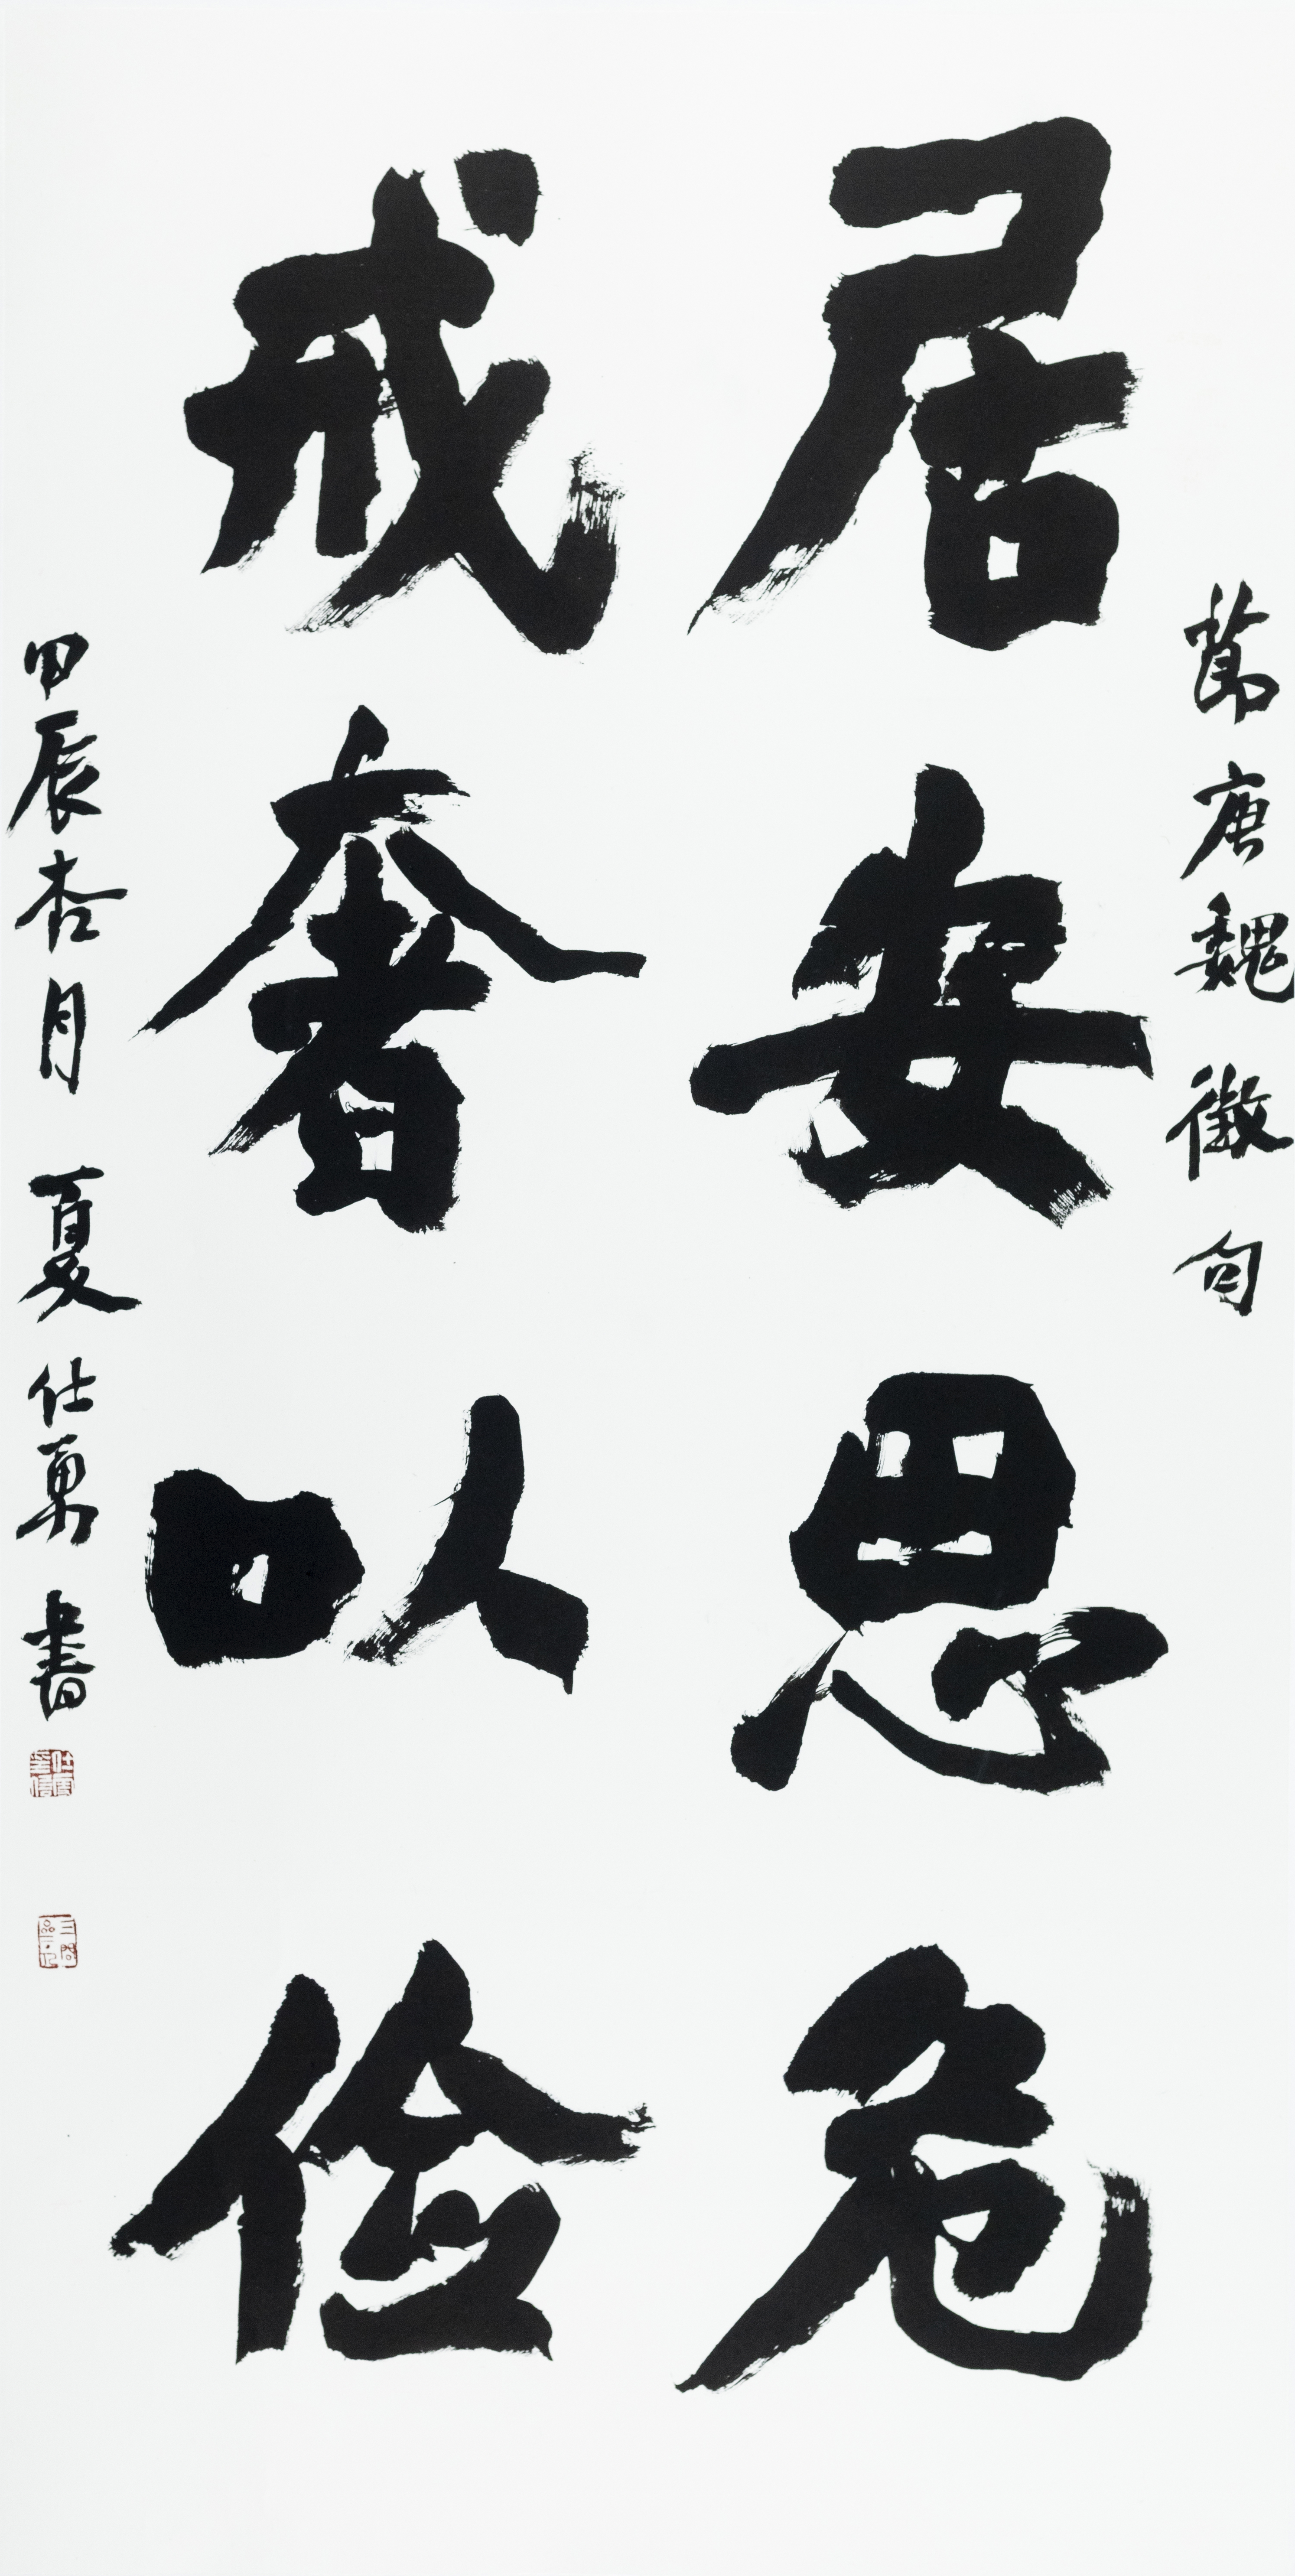 節唐魏徵句
居安思危
戒奢以俭
甲辰杏月 夏仕勇書